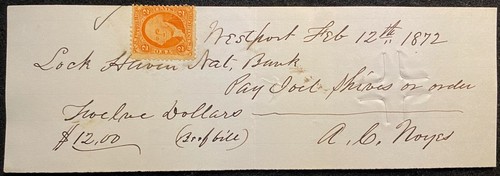 Westport Feb 12th, 1872
Lock Haven Nat, Bank
Pay Joel Shives or order
Twelve Dollars
$12.00 (Beef bill) A. C. Noyes